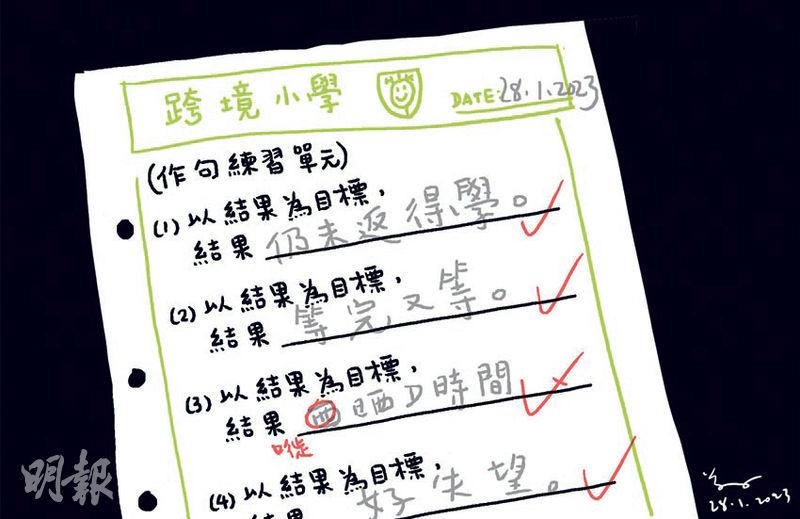 跨境小學
DATE: 28.1.2023
(作句練習單元)
(1) 以結果為目標，
結果 仍未返得學。
(2) 以結果為目標，
結果 等完又等。
(3) 以結果為目標，
結果 晒D時間
嘥
(4) 以結果為目標，
結果 好失望。
明報
28.1.2023